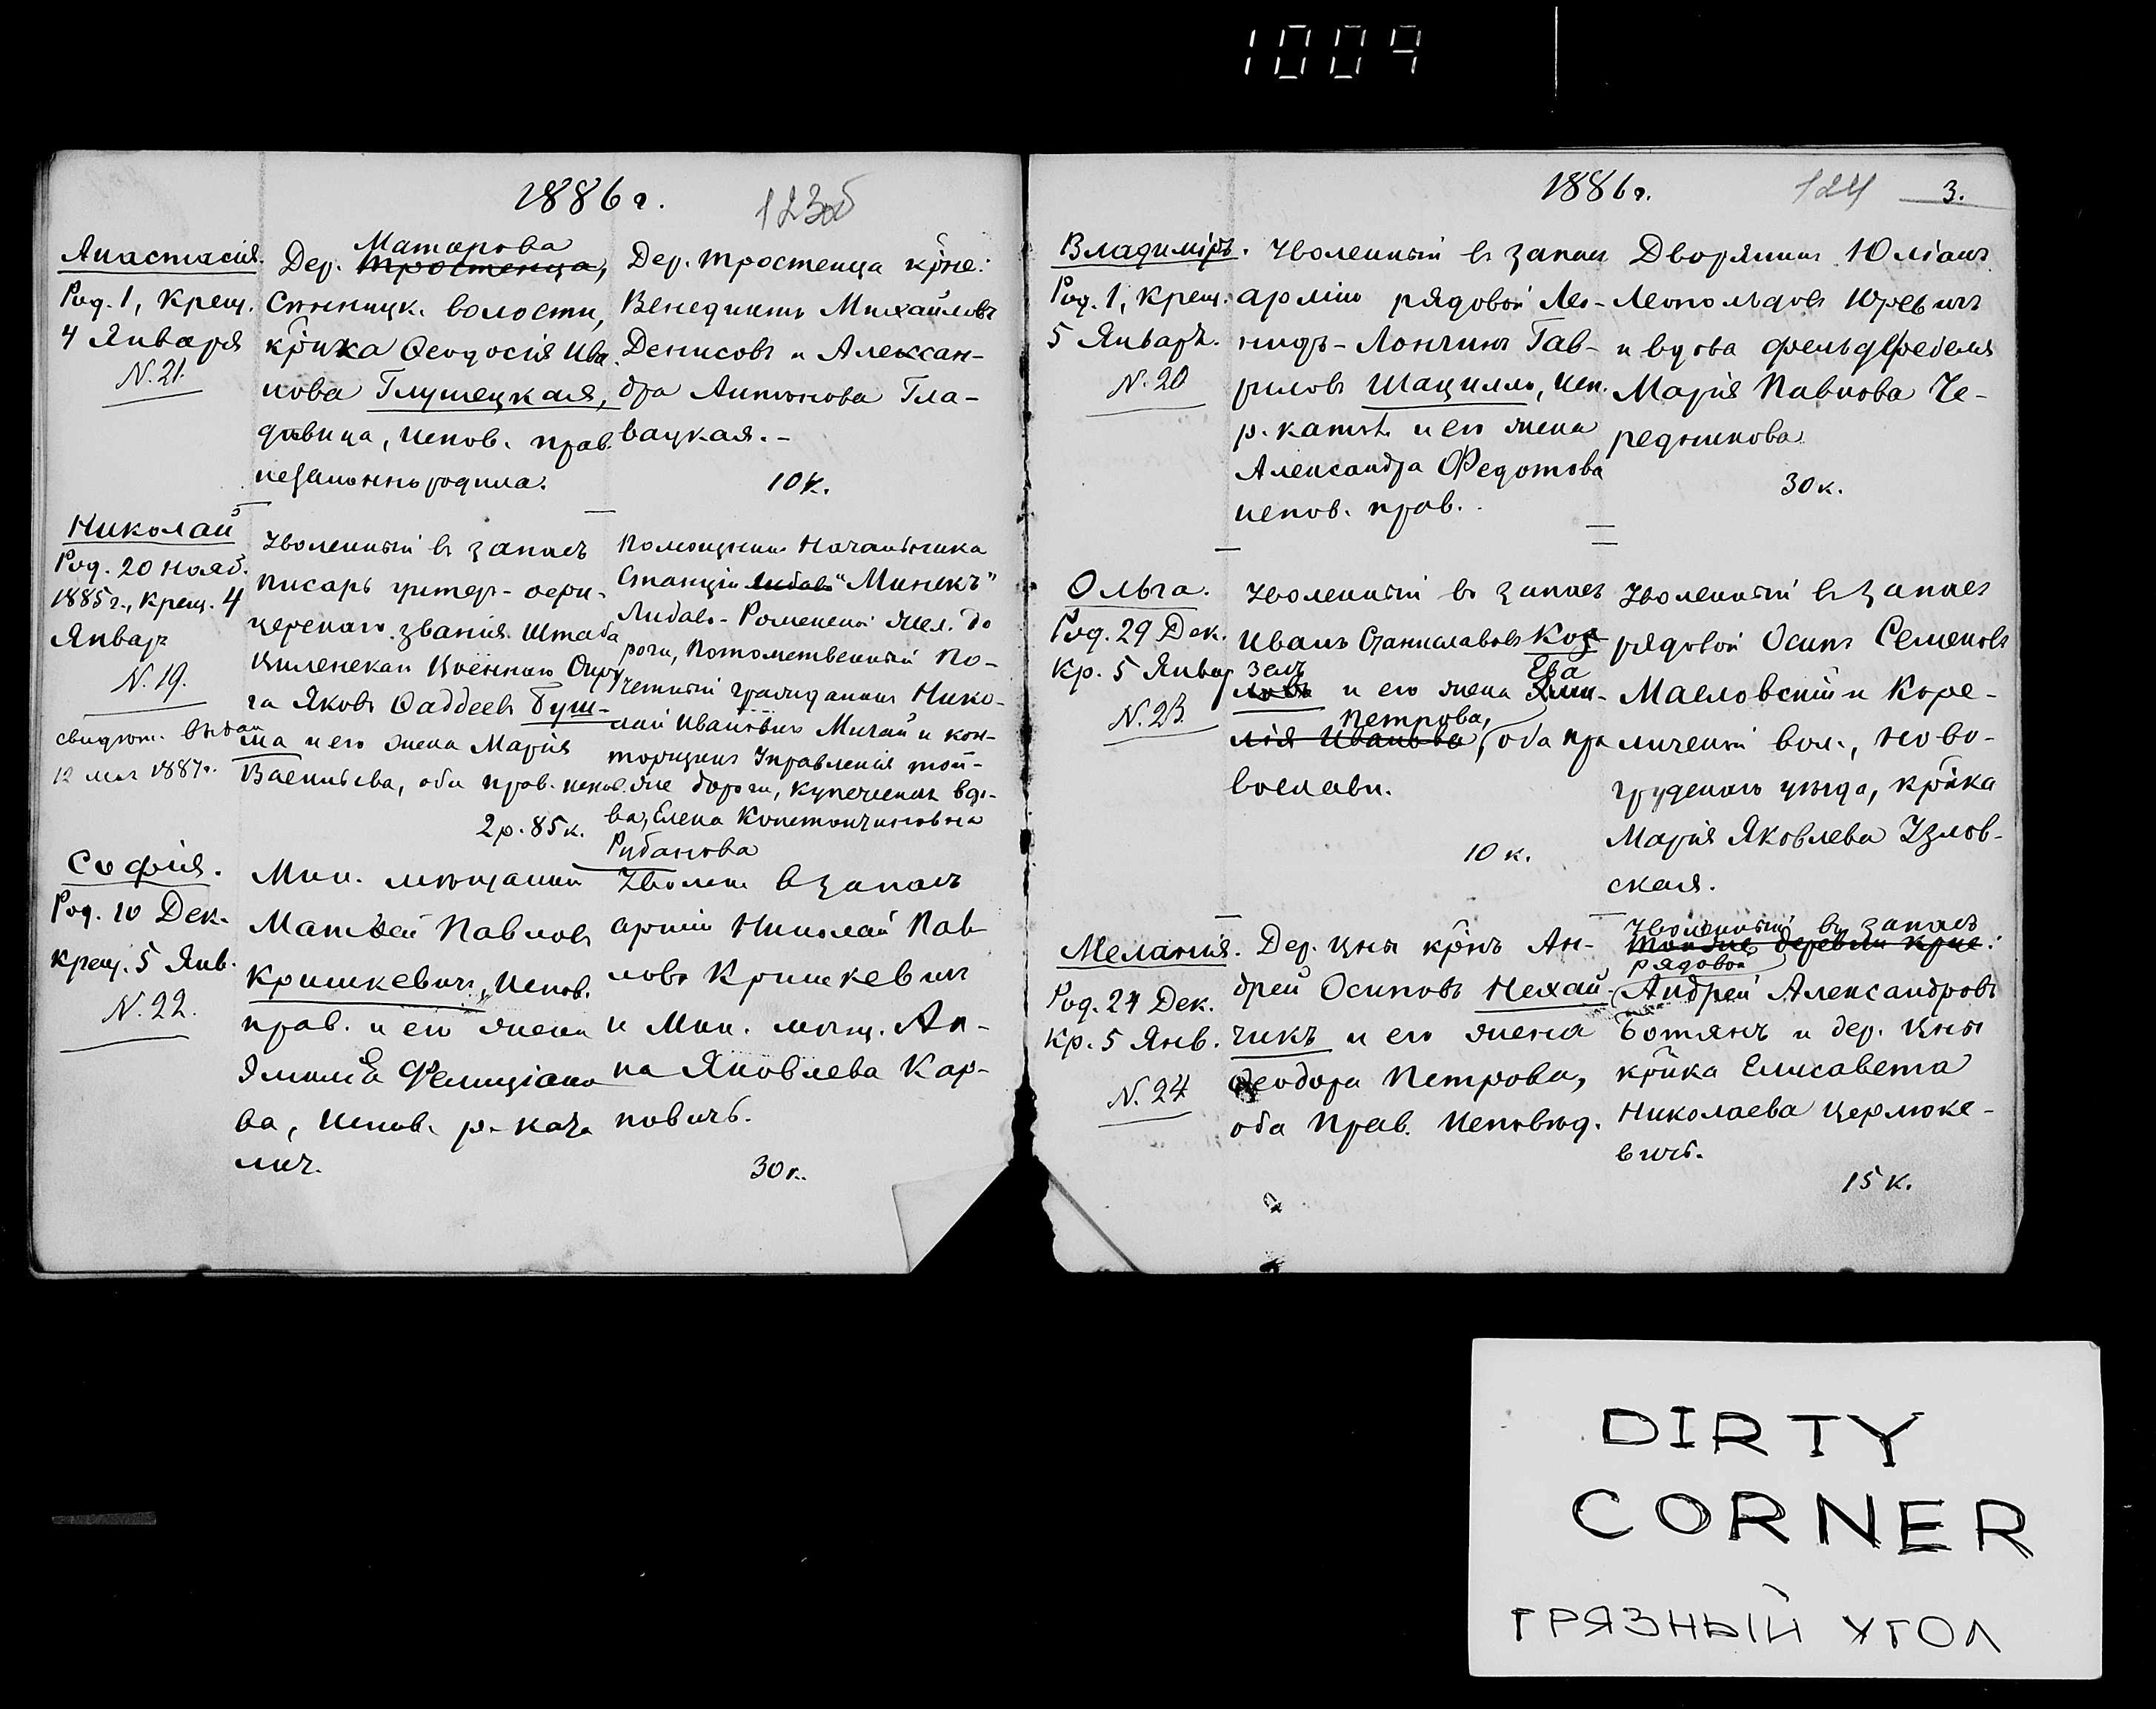 1009
1886 г.
123об
Анастасія.
Род. 1, Крещ.
4 Января
N. 21.
Матарова
Дер. Тростенца,
Сѣнницк. волости,
крнка Ѳеодосія Ива
нова Глушецкая,
дѣвица, испов. прав.
незаконно родила.
Дер. Тростенца крне:
Венедиктъ Михайловъ
Денисовъ и Алексан-
дра Антонова Гла-
вацкая. -
10 к.
Николай
Род. 20 Нояб.
1885 г., Крещ. 4
Январ
N. 19.
свидѣт. выдан
12 мая 1887 г.
Уволенный въ запасъ
писарь унтер-офи-
церскаго званія Штаба
Виленскаго Военнаго Окру
га Яковъ Ѳаддеевъ Буш-
ма и его жена Марія
Васильева, оба прав. испов.
2 р. 85 к.
Помощникъ Начальника
Станціи Либаво "Минскъ"
Либаво-Роменской жел. до
роги, Потомственный По-
четный гражданинъ Нико-
лай Ивановичъ Мигай и кон-
торщика Управленія той-
же дороги, купеческая вдо-
ва, Елена Константиновна
Рубанова
Софія.
Род. 10 Дек.
крещ. 5 Янв.
N. 22.
Мин. мѣщанин
Матвей Павловъ
Кришкевичъ, Испов.
прав. и его жена
Эмилія Фелиціано
ва, Испов. р-като
лич.
Уволен. въ запасъ
арміи Николай Пав
ловъ Кришкевич
и Мин. мѣщ. Ан-
на Яковлева Кар-
повичъ.
30 к.
1886 г.
124
3.
Владиміръ.
Род. 1, Крещ.
5 Январ.
N. 20
Уволенный въ запас
арміи рядовой Лео-
нидъ-Лонгинъ Гав-
риловъ Шацилло, исп.
р. катол. и его жена
Александра Федотова
испов. прав.
Дворянинъ Юліанъ
Леопольдовъ Юревичъ
и вдова фельдфебеля
Марія Павлова Че-
редникова
30 к.
Ольга.
Род. 29 Дек.
Кр. 5 Январ
N. 23.
Уволенный въ запасъ
Иванъ Станиславовъ Коз
зелъ
и его жена Ева
Петрова,
лія Иванова, оба пра
вославн.
10 к.
Уволенный въ запасъ
рядовой Осипъ Семеновъ
Масловскій и Коре-
личской вол., Ново-
грудскаго уѣзда, крнка
Марія Яковлева Узлов-
ская.
Меланія.
Род. 24 Дек.
Кр. 5 Янв.
N. 24
Дер. Цны крнъ Ан-
дрей Осиповъ Нехай-
чикъ и его жена
Ѳеодора Петрова,
оба Прав. Исповѣд.
Уволенный въ запасъ
Той же деревни крне:
рядовой
Андрей Александровъ
Ботянъ и дер. Цны
крнка Елисавета
Николаева Цермоке-
вичъ.
15 к.
DIRTY
CORNER
ГРЯЗНЫЙ УГОЛ